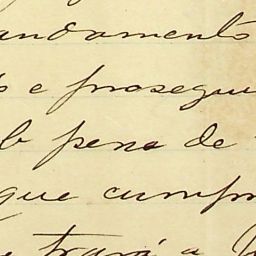 andamento
e prosegui
b pena de
que cump
trará a